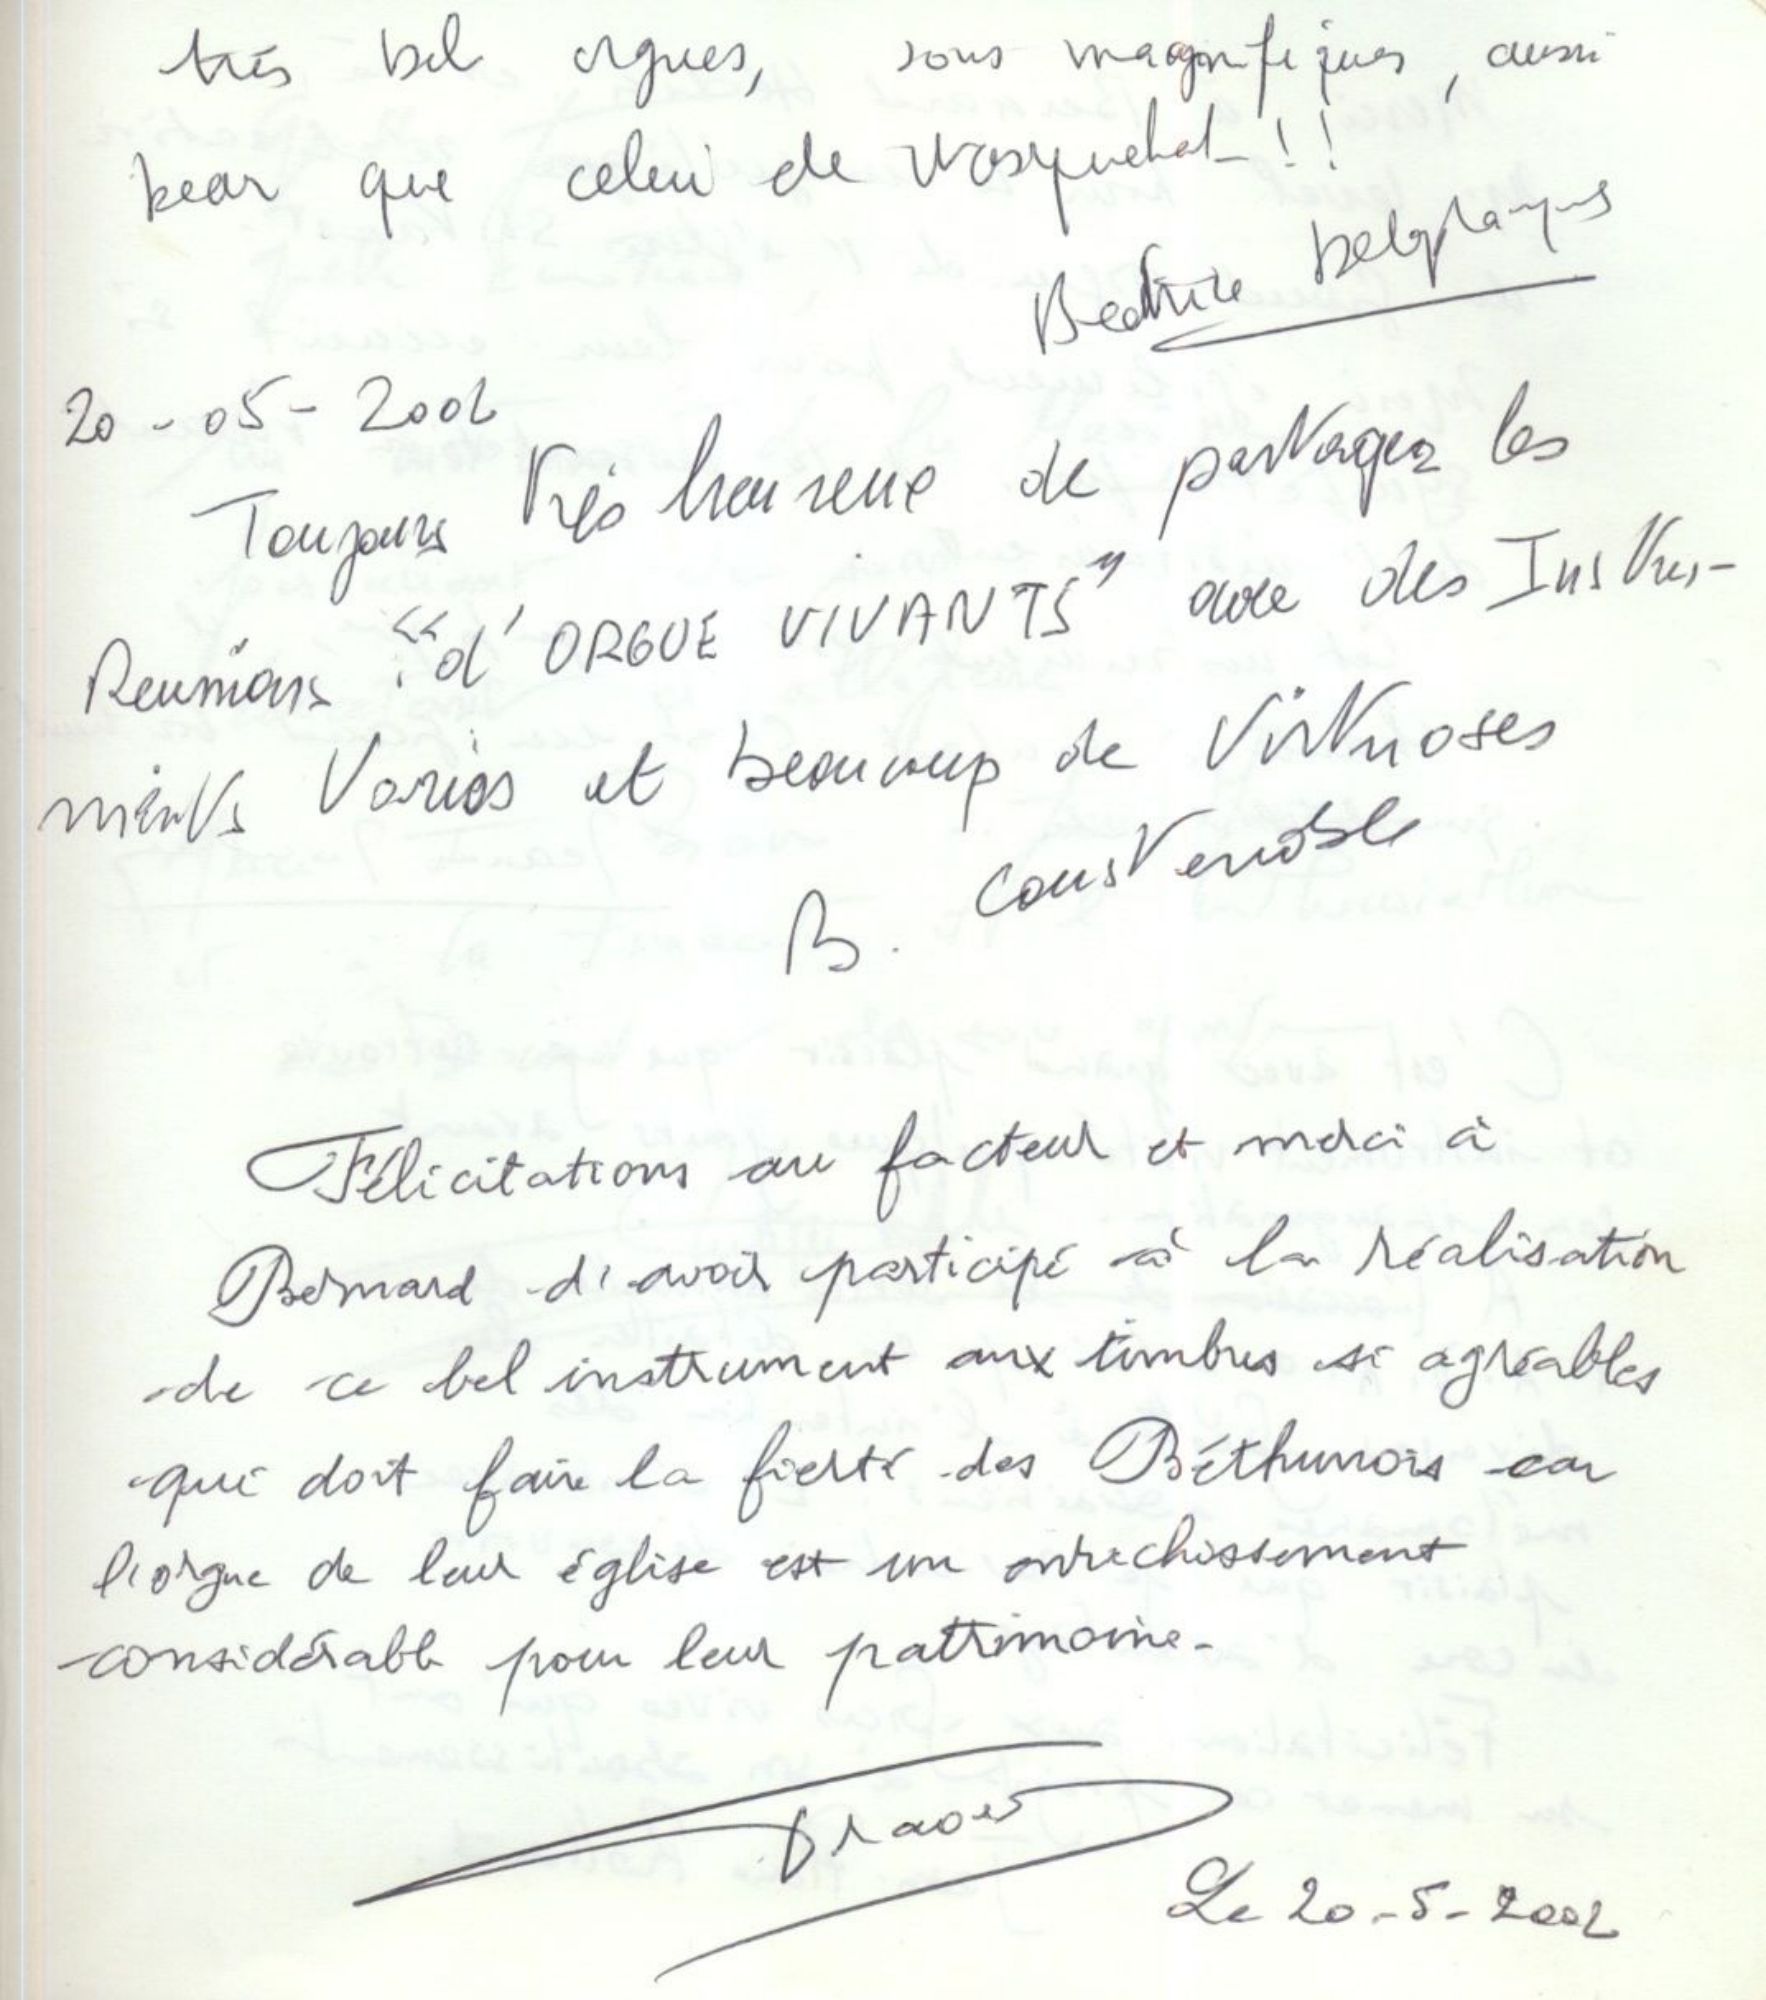 très bel orgues, sons magnifiques, aussi
beau que celui de Wasquehal !!
Beatrice
20-05-2002
Toujours très heureuse de partager les
Reunions "d'ORGUE VIVANTS" avec des Instru-
ments Variés et beaucoup de Virtuoses
B. Constenoble
Félicitations au facteur et merci à
Bernard d'avoir participé à la réalisation
de ce bel instrument aux timbres si agréables
qui doit faire la fierté des Béthunois car
l'orgue de leur église est un enrichissement
considérable pour leur patrimoine.
Le 20-5-2002